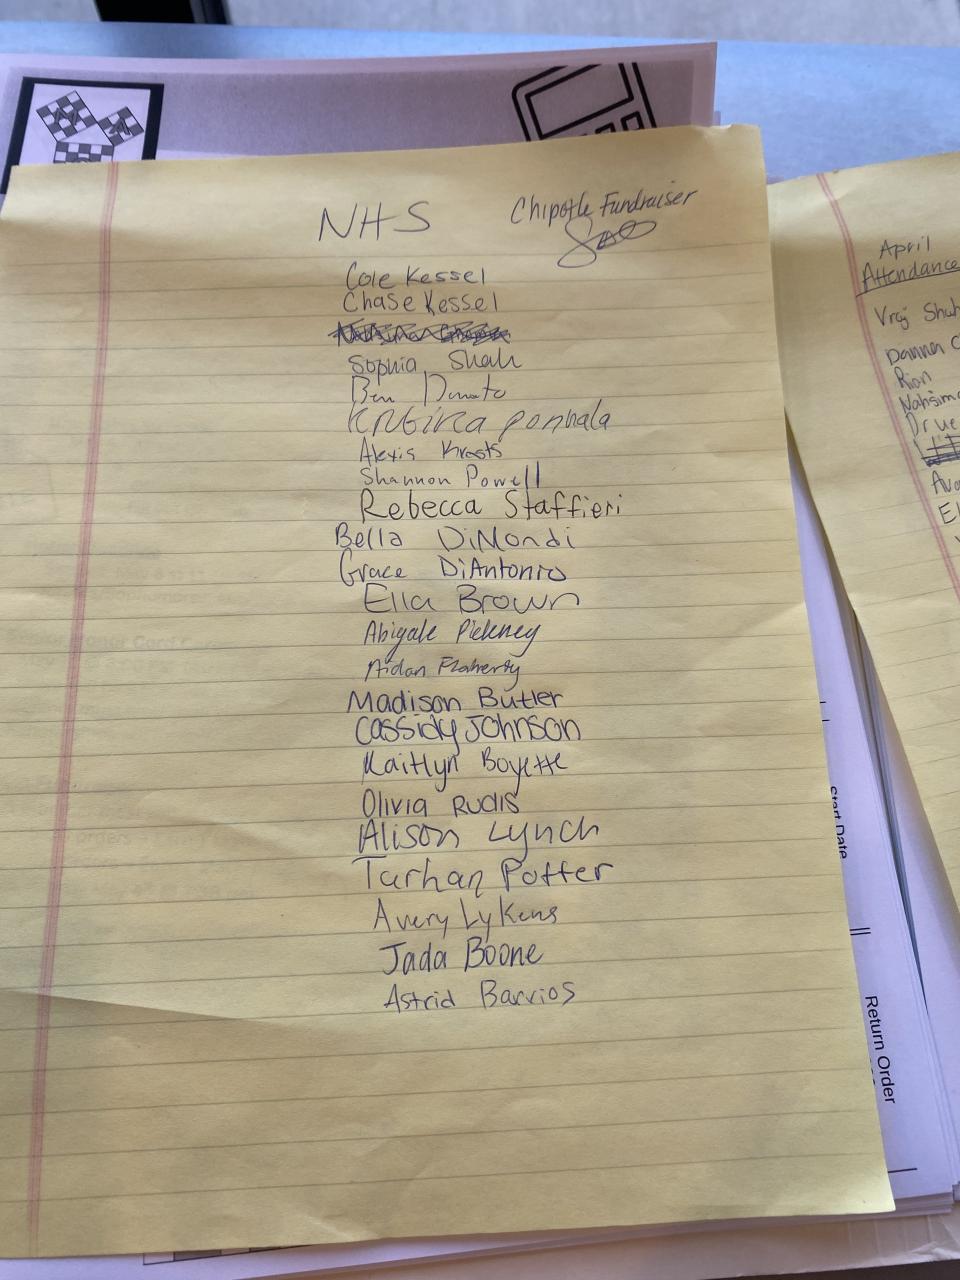 NHS
Chipotle Fundraiser
Cole Kessel
Chase Kessel
Sophia Shah
Ben Donato
Alexis
Shannon Powell
Rebecca Staffieri
Bella DiMondi
Grace DiAntonio
Ella Brown
Abigale Pickney
Aidan Flaherty
Madison Butler
Cassidy Johnson
Kaitlyn Boyette
Olivia Rudis
Alison Lynch
Turhan Potter
Avery Lykens
Jada Boone
Astrid Barrios
April
Attendance
Vraj Shah
Rion
Start Date
Return Order